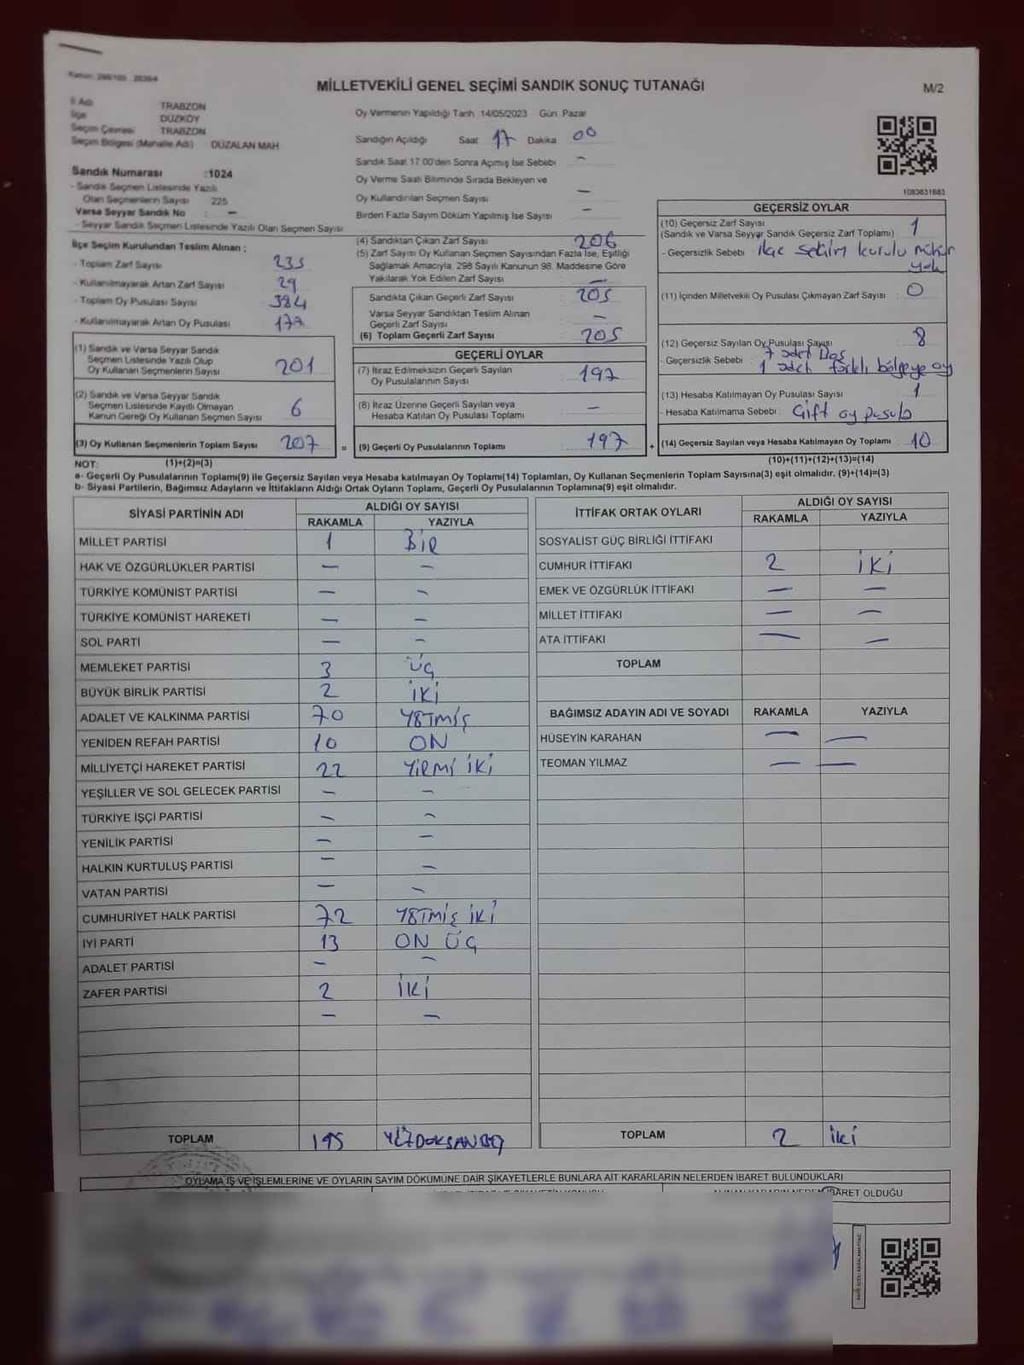 MİLLETVEKİLİ GENEL SEÇİMİ SANDIK SONUÇ TUTANAĞI
M/2
İl Adı TRABZON
İlçe DÜZKÖY
Seçim Çevresi TRABZON
Seçim Bölgesi (Mahalle Adı) DÜZALAN MAH
Sandık Numarası :1024
- Sandık Seçmen Listesinde Yazılı
Olan Seçmenlerin Sayısı 225
Varsa Seyyar Sandık No : -
- Seyyar Sandık Seçmen Listesinde Yazılı Olan Seçmen Sayısı
Oy Vermenin Yapıldığı Tarih 14/05/2023 Gün Pazar
Sandığın Açıldığı Saat 17 Dakika 00
Sandık Saat 17:00'den Sonra Açılmış İse Sebebi -
Oy Verme Saati Bitiminde Sırada Bekleyen ve
Oy Kullandırılan Seçmen Sayısı -
Birden Fazla Sayım Döküm Yapılmış İse Sayısı -
1083631683
İlçe Seçim Kurulundan Teslim Alınan :
- Toplam Zarf Sayısı 235
- Kullanılmayarak Artan Zarf Sayısı 29
- Toplam Oy Pusulası Sayısı 384
- Kullanılmayarak Artan Oy Pusulası 177
(1) Sandık ve Varsa Seyyar Sandık
Seçmen Listesinde Yazılı Olup
Oy Kullanan Seçmenlerin Sayısı 201
(2) Sandık ve Varsa Seyyar Sandık
Seçmen Listesinde Kayıtlı Olmayan
Kanun Gereği Oy Kullanan Seçmen Sayısı 6
(3) Oy Kullanan Seçmenlerin Toplam Sayısı 207 =
(1)+(2)=(3)
(4) Sandıktan Çıkan Zarf Sayısı 206
(5) Zarf Sayısı Oy Kullanan Seçmen Sayısından Fazla İse, Eşitliği
Sağlamak Amacıyla, 298 Sayılı Kanunun 98. Maddesine Göre
Yakılarak Yok Edilen Zarf Sayısı -
Sandıkta Çıkan Geçerli Zarf Sayısı 205
Varsa Seyyar Sandıktan Teslim Alınan
Geçerli Zarf Sayısı -
(6) Toplam Geçerli Zarf Sayısı 205
GEÇERLİ OYLAR
(7) İtiraz Edilmeksizin Geçerli Sayılan
Oy Pusulalarının Sayısı 197
(8) İtiraz Üzerine Geçerli Sayılan veya
Hesaba Katılan Oy Pusulası Toplamı -
(9) Geçerli Oy Pusulalarının Toplamı 197 +
GEÇERSİZ OYLAR
(10) Geçersiz Zarf Sayısı 1
(Sandık ve Varsa Seyyar Sandık Geçersiz Zarf Toplamı)
- Geçersizlik Sebebi ilçe seçim kurulu mühür
yok
(11) İçinden Milletvekili Oy Pusulası Çıkmayan Zarf Sayısı 0
(12) Geçersiz Sayılan Oy Pusulası Sayısı 8
- Geçersizlik Sebebi 7 adet
1 adet farklı bölgeye oy
(13) Hesaba Katılmayan Oy Pusulası Sayısı 1
- Hesaba Katılmama Sebebi Çift oy pusula
(14) Geçersiz Sayılan veya Hesaba Katılmayan Oy Toplamı 10
(10)+(11)+(12)+(13)=(14)
NOT:
a- Geçerli Oy Pusulalarının Toplamı(9) ile Geçersiz Sayılan veya Hesaba katılmayan Oy Toplamı(14) Toplamları, Oy Kullanan Seçmenlerin Toplam Sayısına(3) eşit olmalıdır. (9)+(14)=(3)
b- Siyasi Partilerin, Bağımsız Adayların ve İttifakların Aldığı Ortak Oyların Toplamı, Geçerli Oy Pusulalarının Toplamına(9) eşit olmalıdır.
SİYASİ PARTİNİN ADI ALDIĞI OY SAYISI
RAKAMLA YAZIYLA
MİLLET PARTİSİ 1 BİR
HAK VE ÖZGÜRLÜKLER PARTİSİ - -
TÜRKİYE KOMÜNİST PARTİSİ - -
TÜRKİYE KOMÜNİST HAREKETİ - -
SOL PARTİ - -
MEMLEKET PARTİSİ 3 ÜÇ
BÜYÜK BİRLİK PARTİSİ 2 İKİ
ADALET VE KALKINMA PARTİSİ 70 YETMİŞ
YENİDEN REFAH PARTİSİ 10 ON
MİLLİYETÇİ HAREKET PARTİSİ 22 YİRMİ İKİ
YEŞİLLER VE SOL GELECEK PARTİSİ - -
TÜRKİYE İŞÇİ PARTİSİ - -
YENİLİK PARTİSİ - -
HALKIN KURTULUŞ PARTİSİ - -
VATAN PARTİSİ - -
CUMHURİYET HALK PARTİSİ 72 YETMİŞ İKİ
İYİ PARTİ 13 ON ÜÇ
ADALET PARTİSİ - -
ZAFER PARTİSİ 2 İKİ
- -
TOPLAM 195 YÜZDOKSANBEŞ
İTTİFAK ORTAK OYLARI ALDIĞI OY SAYISI
RAKAMLA YAZIYLA
SOSYALİST GÜÇ BİRLİĞİ İTTİFAKI
CUMHUR İTTİFAKI 2 İKİ
EMEK VE ÖZGÜRLÜK İTTİFAKI - -
MİLLET İTTİFAKI - -
ATA İTTİFAKI - -
TOPLAM
BAĞIMSIZ ADAYIN ADI VE SOYADI RAKAMLA YAZIYLA
HÜSEYİN KARAHAN - -
TEOMAN YILMAZ - -
TOPLAM 2 iki
OYLAMA İŞ VE İŞLEMLERİNE VE OYLARIN SAYIM DÖKÜMÜNE DAİR ŞİKAYETLERLE BUNLARA AİT KARARLARIN NELERDEN İBARET BULUNDUKLARI
İBARET OLDUĞU